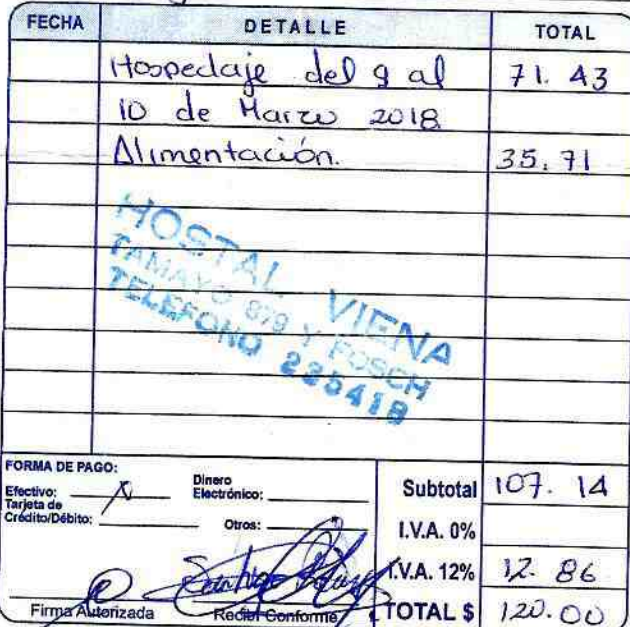 FECHA DETALLE TOTAL
Hospedaje del 9 al 71.43
10 de Marzo 2018
Alimentación. 35.71
HOSTAL VIENA
TAMAYO 879 Y FOSCH
TELEFONO 235418
FORMA DE PAGO:
Efectivo: X
Dinero Electrónico:
Tarjeta de Crédito/Débito:
Otros:
Subtotal 107.14
I.V.A. 0%
I.V.A. 12% 12.86
TOTAL $ 120.00
Firma Autorizada
Recibí Conforme